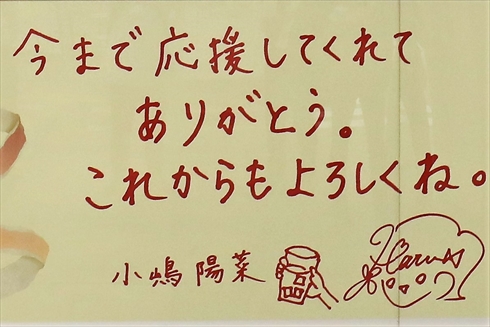 今まで応援してくれて
ありがとう。
これからもよろしくね。
小嶋陽菜